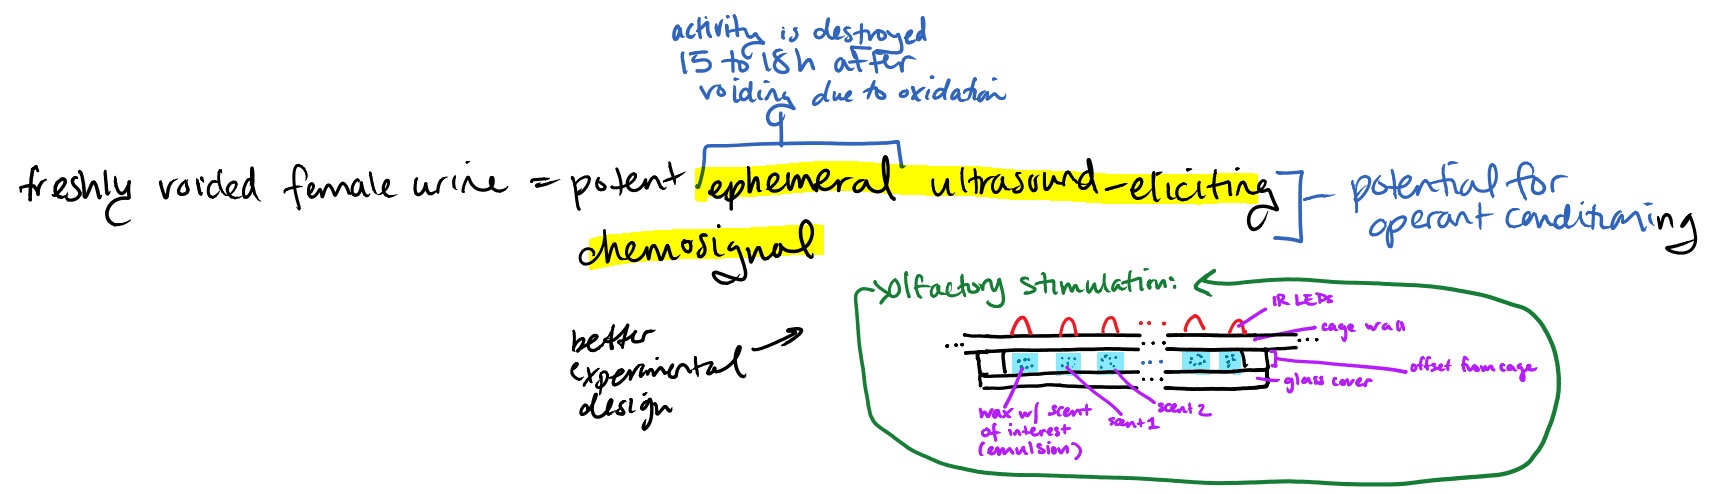 activity is destroyed
15 to 18h after
voiding due to oxidation
freshly voided female urine = potent ephemeral ultrasound-eliciting
chemosignal
potential for
operant conditioning
better
experimental
design
olfactory stimulation:
IR LEDs
cage wall
offset from cage
glass cover
wax w/ scent
of interest
(emulsion)
scent 1
scent 2